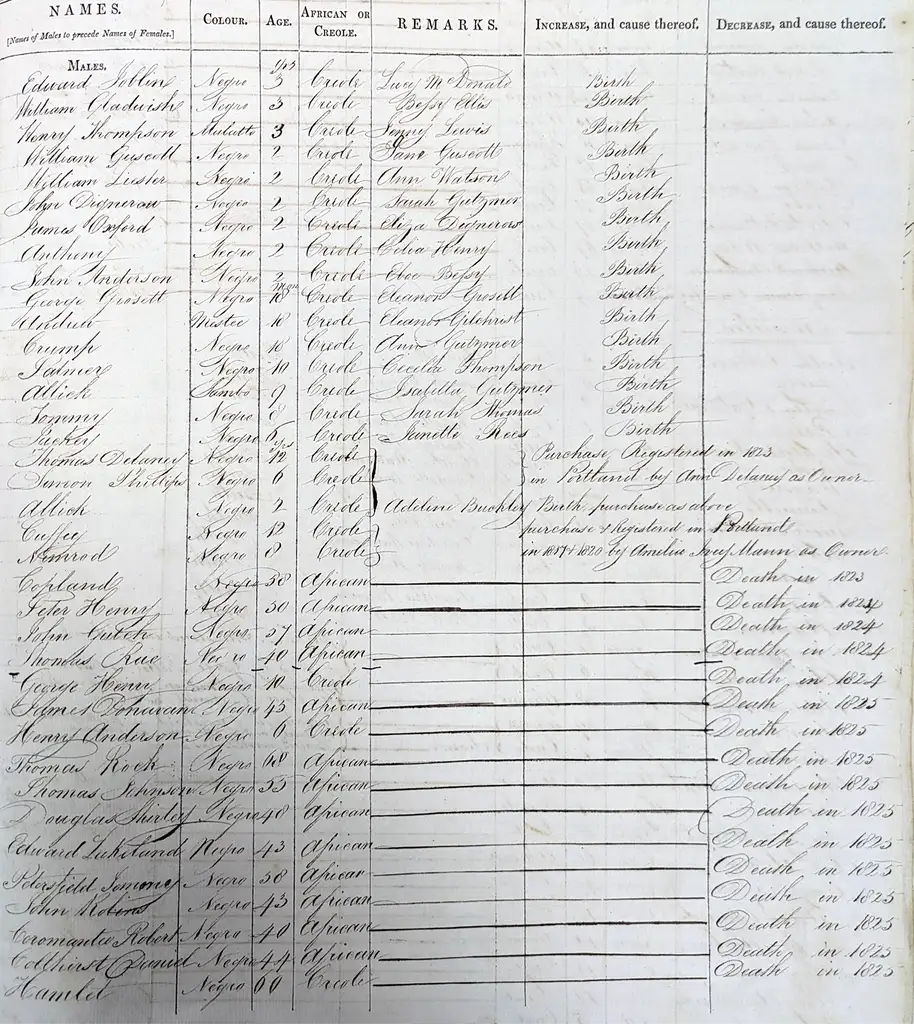 NAMES. COLOUR. AGE. AFRICAN OR CREOLE. REMARKS. INCREASE, and cause thereof. DECREASE, and cause thereof.
[Names of Males to precede Names of Females.]
MALES. yrs
Edward Joblin Negro 3 Creole Lucy McDonald Birth
William Gladwish Negro 3 Creole Bessy Ellis Birth
Henry Thompson Mulatto 3 Creole Jenny Lewis Birth
William Guscott Negro 2 Creole Jane Guscott Birth
William Lister Negro 2 Creole Ann Watson Birth
John Dignerow Negro 2 Creole Sarah Gutzmor Birth
James Oxford Negro 2 Creole Eliza Dignerow Birth
Anthony Negro 2 Creole Celia Henry Birth
John Anderson Negro 2 Creole Eboe Bessy Birth
mon
George Grosett Negro 18 Creole Eleanor Grosett Birth
Andrew Mustee 18 Creole Eleanor Gilchrist Birth
Crump Negro 18 Creole Ann Gutzmor Birth
Palmer Negro 10 Creole Cecelia Thompson Birth
Allick Sambo 9 Creole Isabella Gutzmer Birth
Tommy Negro 8 Creole Sarah Thomas Birth
Packey Negro 6 Creole Jinette Rees Birth
yrs
Thomas Delaney Negro 12 Creole Purchase, Registered in 1823
Simon Phillips Negro 6 Creole in Portland by Ann Delaney as Owner
Allick Negro 2 Creole Adeline Buckley Birth, purchase as above
Cuffee Negro 12 Creole purchase & Registered in Portland
Nimrod Negro 8 Creole in 1817 & 1820 by Amelia Mann as Owner
Copland Negro 38 African Death in 1823
Peter Henry Negro 50 African Death in 1824
John Gutch Negro 57 African Death in 1824
Thomas Rae Negro 40 African Death in 1824
George Henry Negro 10 Creole Death in 1824
James Donavan Negro 45 African Death in 1825
Henry Anderson Negro 6 Creole Death in 1825
Thomas Rock Negro 68 African Death in 1825
Thomas Johnson Negro 55 African Death in 1825
Douglas Shirley Negro 48 African Death in 1825
Edward Negro 43 African Death in 1825
Petersfield Jemmy Negro 58 African Death in 1825
John Robins Negro 43 African Death in 1825
Coromantee Robert Negro 40 African Death in 1825
Collhirst Daniel Negro 44 African Death in 1825
Hamlet Negro 60 Creole Death in 1825